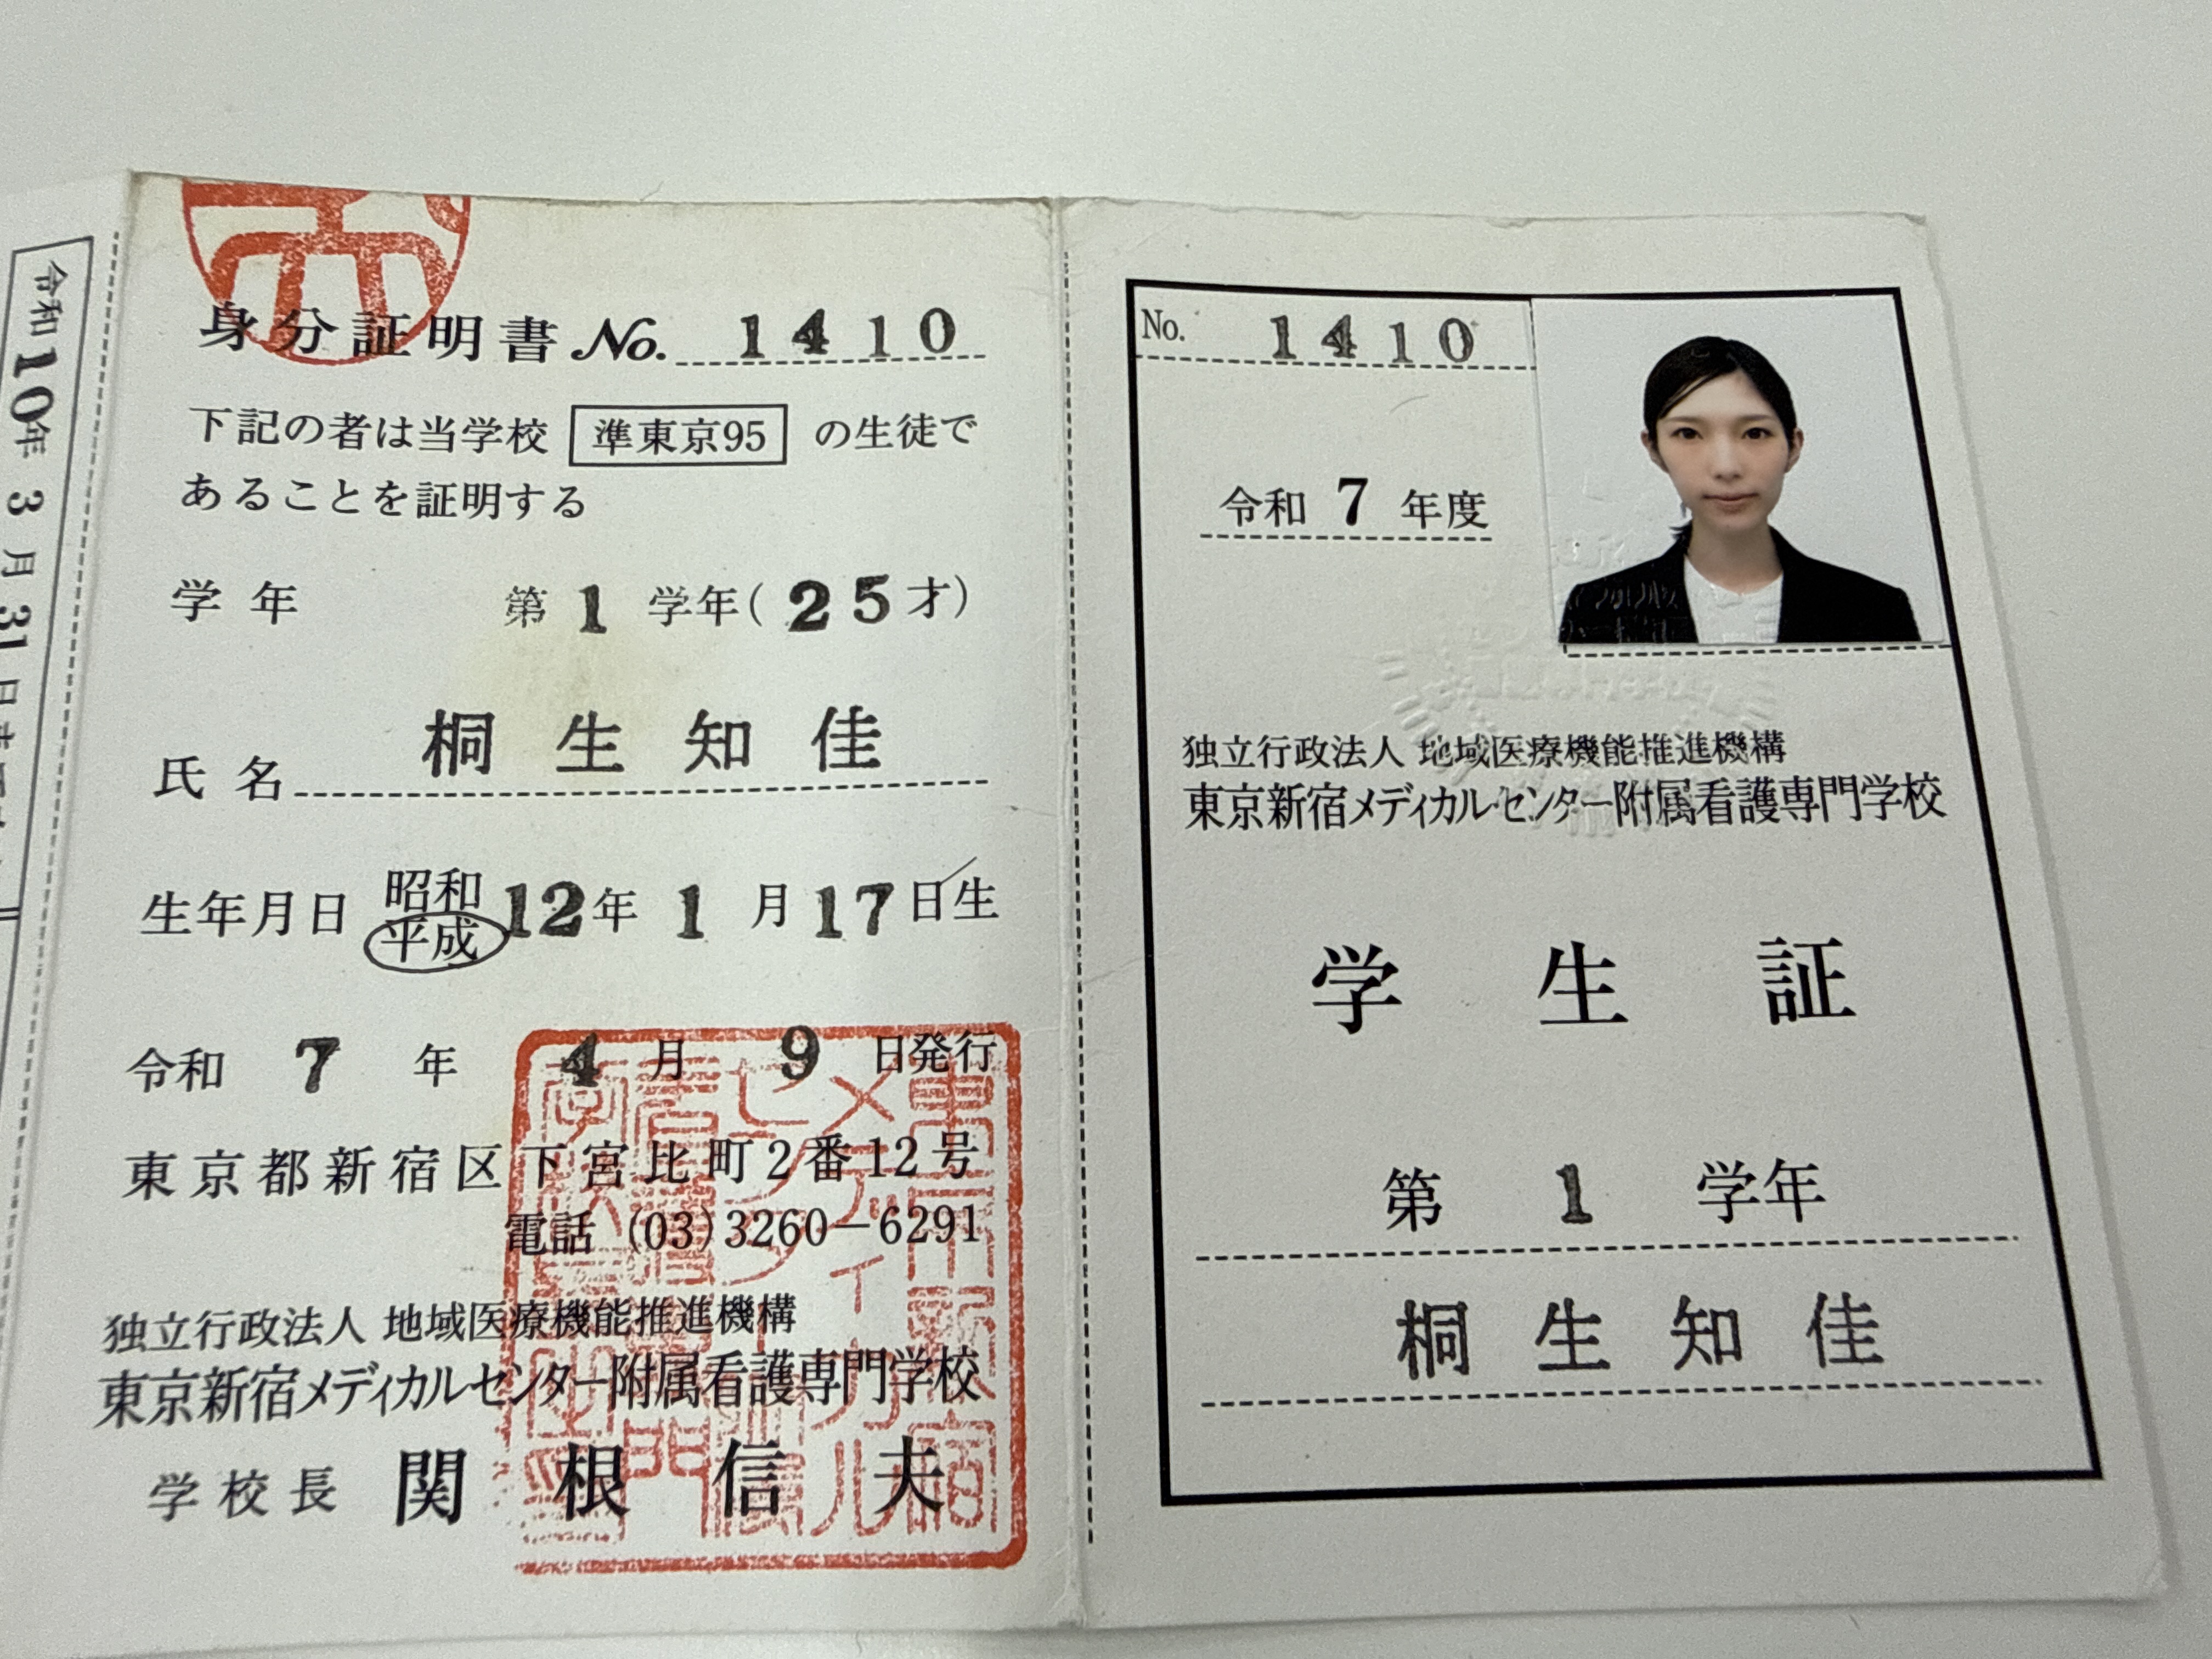 令和10年 3月31日
身分証明書 No. 1410
下記の者は当学校 準東京95 の生徒で
あることを証明する
学年 第 1 学年(25才)
氏名 桐生知佳
生年月日 昭和 平成 12年 1月17日生
令和 7 年 4 月 9 日発行
東京都新宿区下宮比町2番12号
電話 (03)3260-6291
独立行政法人 地域医療機能推進機構
東京新宿メディカルセンター附属看護専門学校
学校長 関根信夫
No. 1410
令和 7 年度
独立行政法人 地域医療機能推進機構
東京新宿メディカルセンター附属看護専門学校
学生証
第 1 学年
桐生知佳